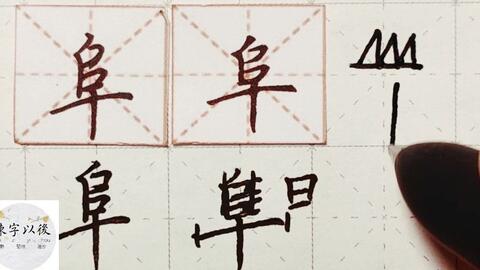 阜 阜
阜 阜
練字以後